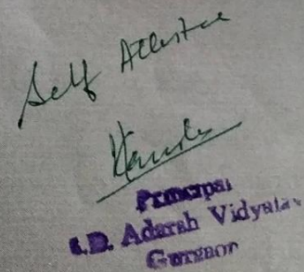 Self Attested
Principal
S.D. Adarsh Vidyalaya
Gurgaon